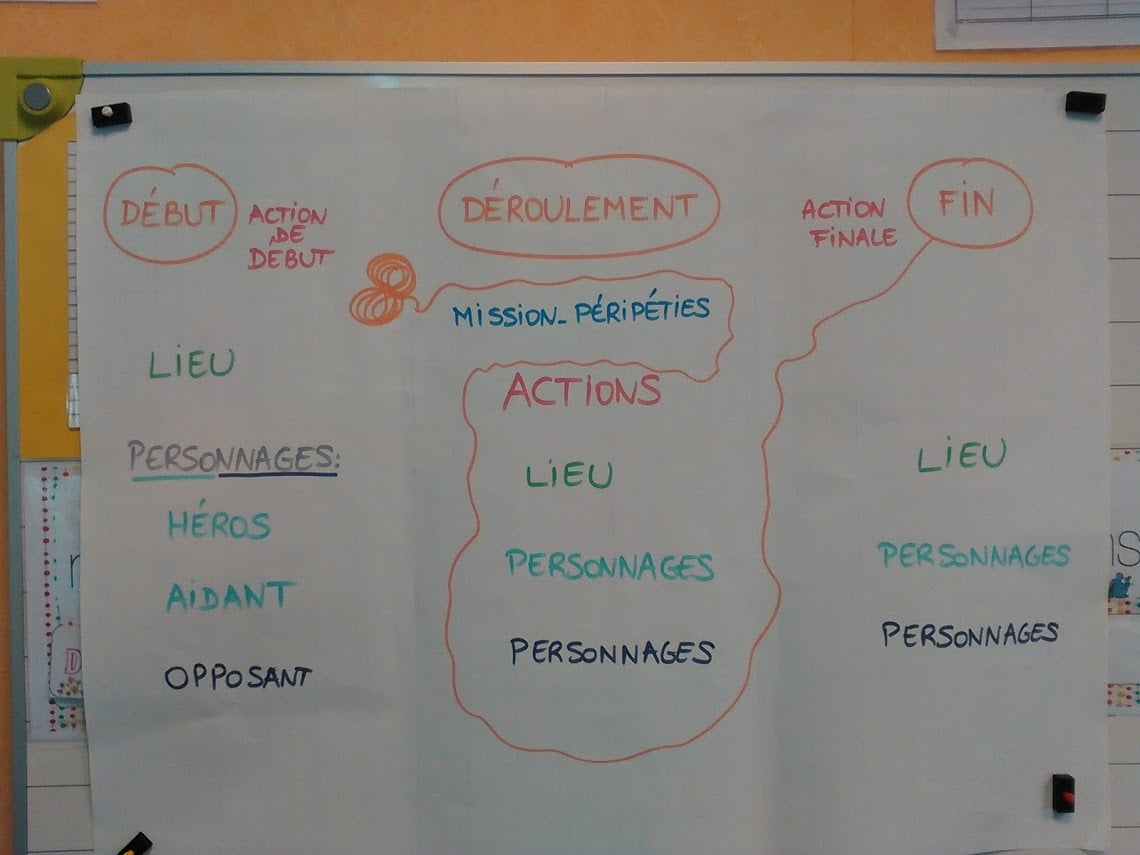 DÉBUT
ACTION
DE
DÉBUT
LiEU
PERSONNAGES:
HÉROS
AiDANT
OPPOSANT
DÉROULEMENT
MiSSiON_PÉRiPÉTiES
ACTiONS
LiEU
PERSONNAGES
PERSONNAGES
ACTiON
FiNALE
FiN
LiEU
PERSONNAGES
PERSONNAGES